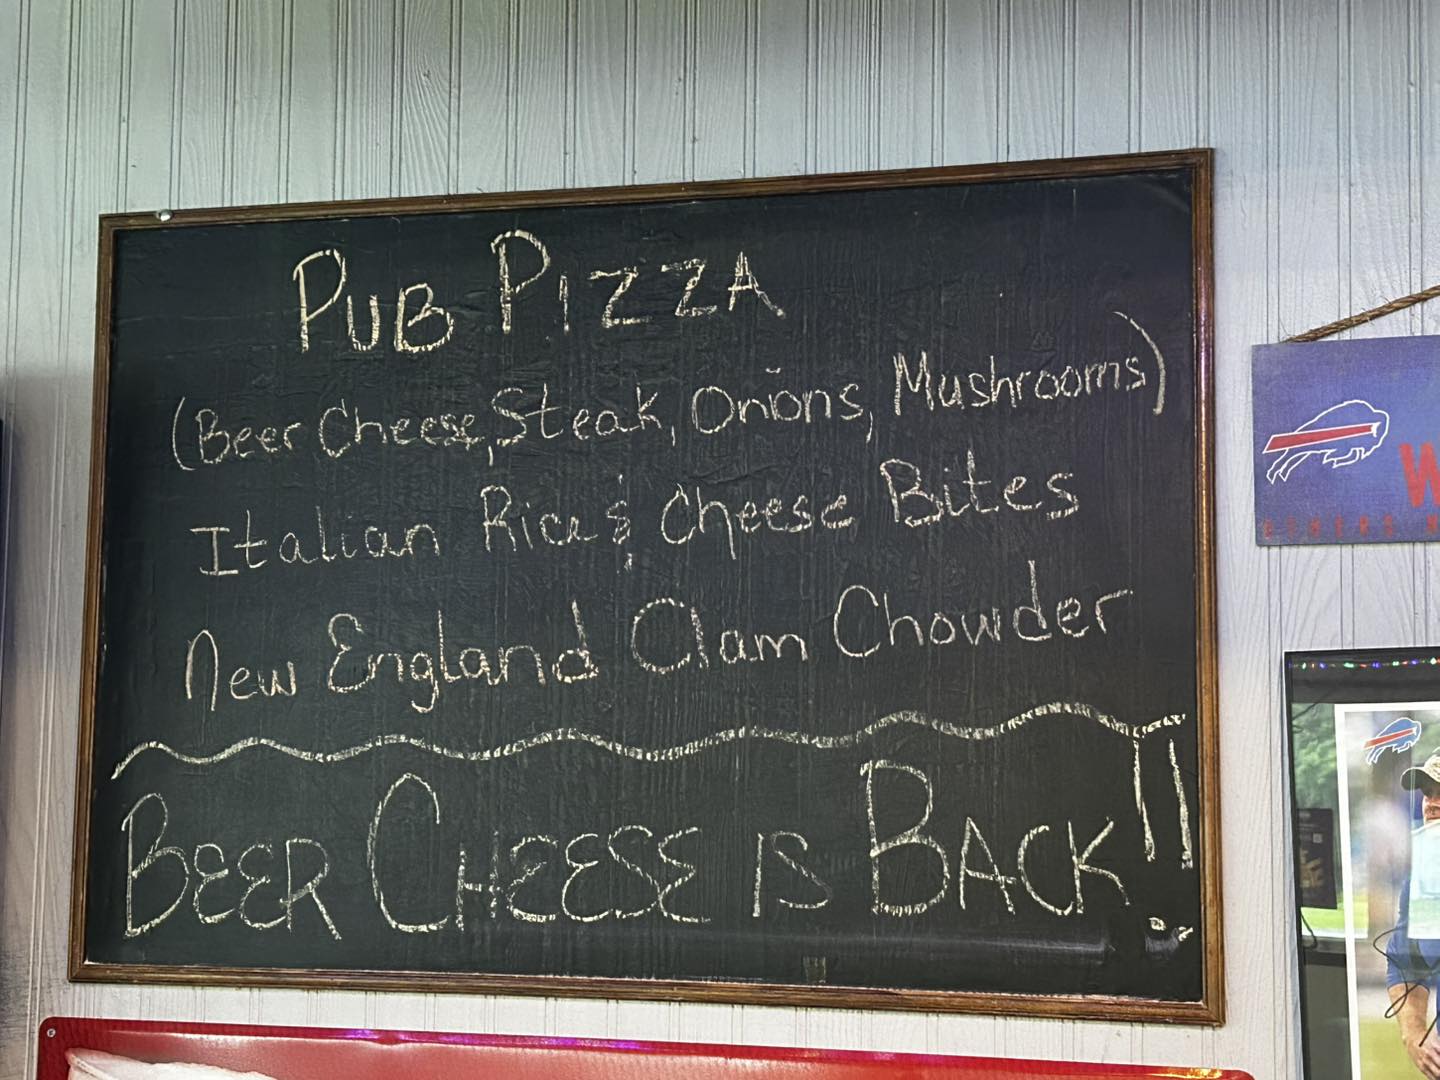 PUB PIZZA
(Beer Cheese, Steak, Onions, Mushrooms)
Italian Rice & Cheese Bites
New England Clam Chowder
BEER CHEESE IS BACK!!